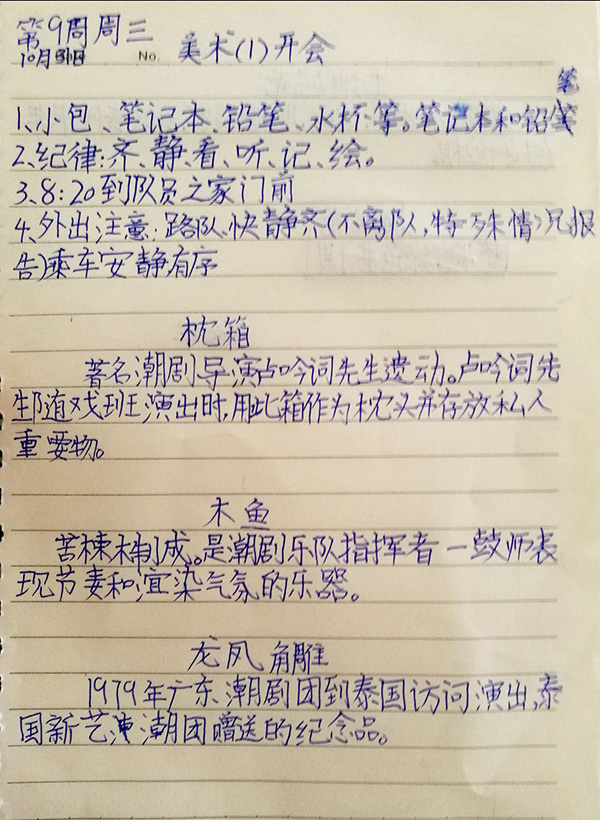 第9周周三
10月31日 No. 美术(1)开会
笔
1、小包、笔记本、铅笔、水杯等。笔记本和铅
2、纪律:齐、静、看、听、记、绘。
3、8:20到队员之家门前
4、外出注意:路队、快静齐(不离队,特殊情况报
告)乘车安静有序
枕箱
著名潮剧导演卢吟词先生遗动。卢吟词先
生随戏班演出时,用此箱作为枕头并存放私人
重要物。
木鱼
苦楝木制成。是潮剧乐队指挥者一鼓师表
现节奏和渲染气氛的乐器。
龙凤角雕
1979年广东潮剧团到泰国访问演出,泰
国新艺潮团赠送的纪念品。